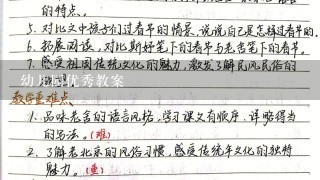 的特点。
5. 对比文中孩子们过春节的情景,说说自己是怎样过春节的。
6. 拓展阅读,对比斯妤笔下的春节与老舍笔下的春节。
7. 感受祖国传统文化的魅力,激发了解民风民俗的
幼儿园优秀教案
教学重难点
1. 品味老舍的语言风格,学习课文有顺序、详略得当
的写法。(难)
2. 了解老北京的风俗习惯,感受传统年文化的独特
魅力。(重)